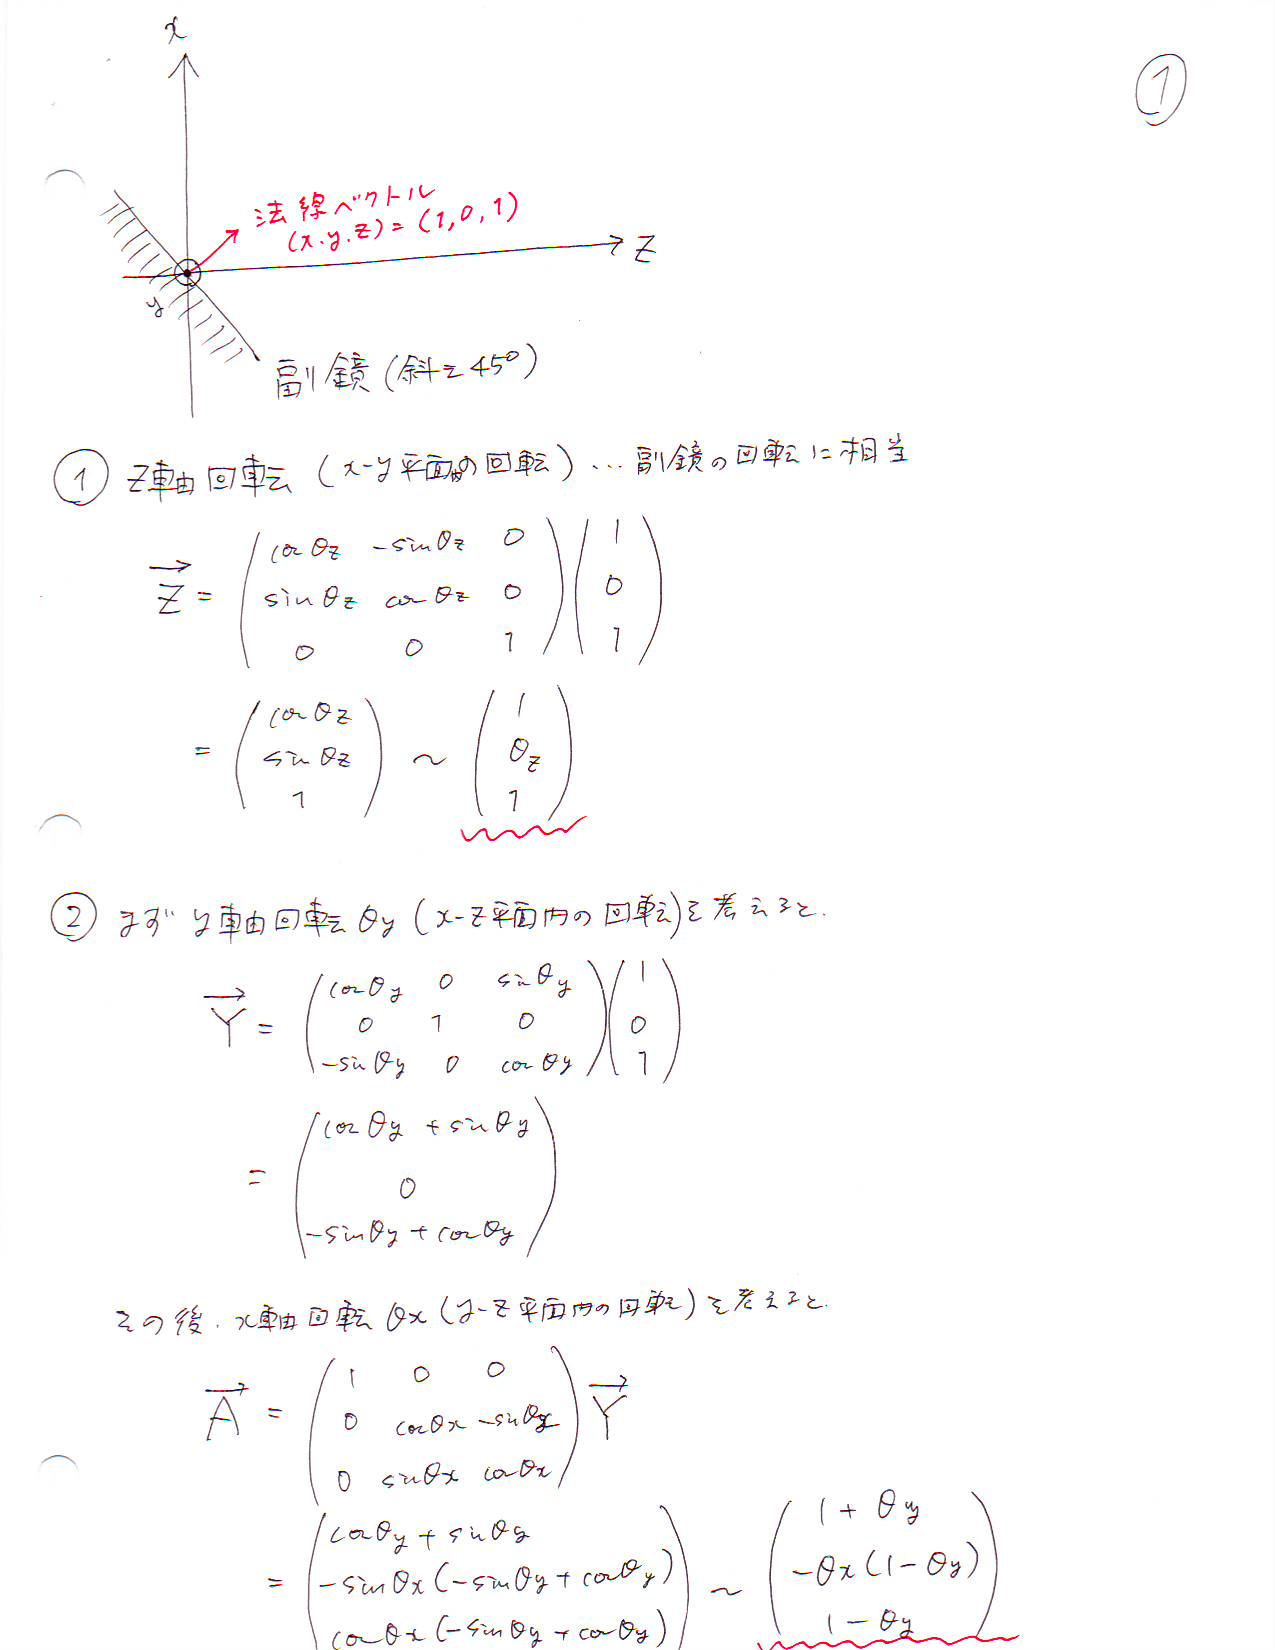 x
①
法線ベクトル
(x.y.z)=(1,0,1)
z
y
副鏡(斜め45°)
① z軸回転 (x-y平面内の回転)…副鏡の回転に相当
→Z = (cosθz -sinθz 0) (1)
(sinθz cosθz 0) (0)
(0 0 1) (1)
= (cosθz) ~ (1)
(sinθz) (θz)
(1) (1)
② まず y軸回転 θy (x-z平面内の回転)を考えると.
→Y = (cosθy 0 sinθy) (1)
(0 1 0) (0)
(-sinθy 0 cosθy) (1)
= (cosθy + sinθy)
(0)
(-sinθy + cosθy)
その後. x軸回転 θx (y-z平面内の回転)を考えると.
→A = (1 0 0) →Y
(0 cosθx -sinθx)
(0 sinθx cosθx)
= (cosθy + sinθy) ~ (1 + θy)
(-sinθx(-sinθy + cosθy)) (-θx(1-θy))
(cosθx(-sinθy + cosθy)) (1-θy)